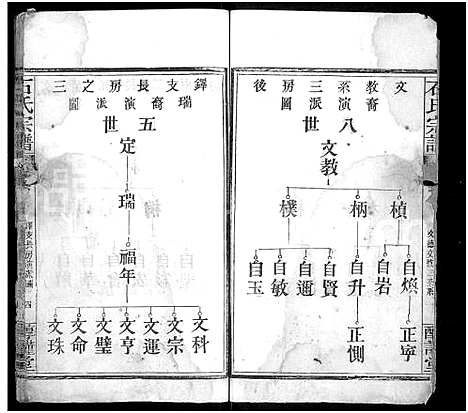 石氏宗譜
文教裔系演三派房圖後
八世
文教
楨 柄 樸
自煥 自岩 自升 自賢 自適 自敏 自玉
正寧 正惻
鐸支長房之三
瑞裔演派圖
五世
定
瑞
福年
文科 文宗 文運 文亨 文璧 文命 文珠
石氏宗譜
四